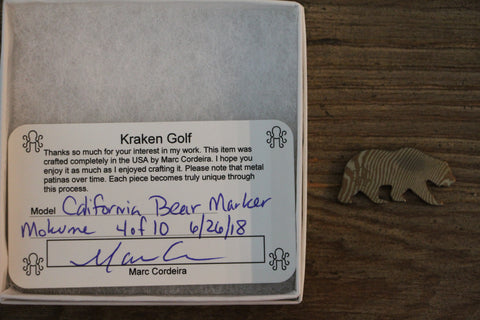 Kraken Golf
Thanks so much for your interest in my work. This item was
crafted completely in the USA by Marc Cordeira. I hope you
enjoy it as much as I enjoyed crafting it. Please note that metal
patinas over time. Each piece becomes truly unique through
this process.
Model California Bear Marker
Mokume 4 of 10 6/26/18
Marc Cordeira